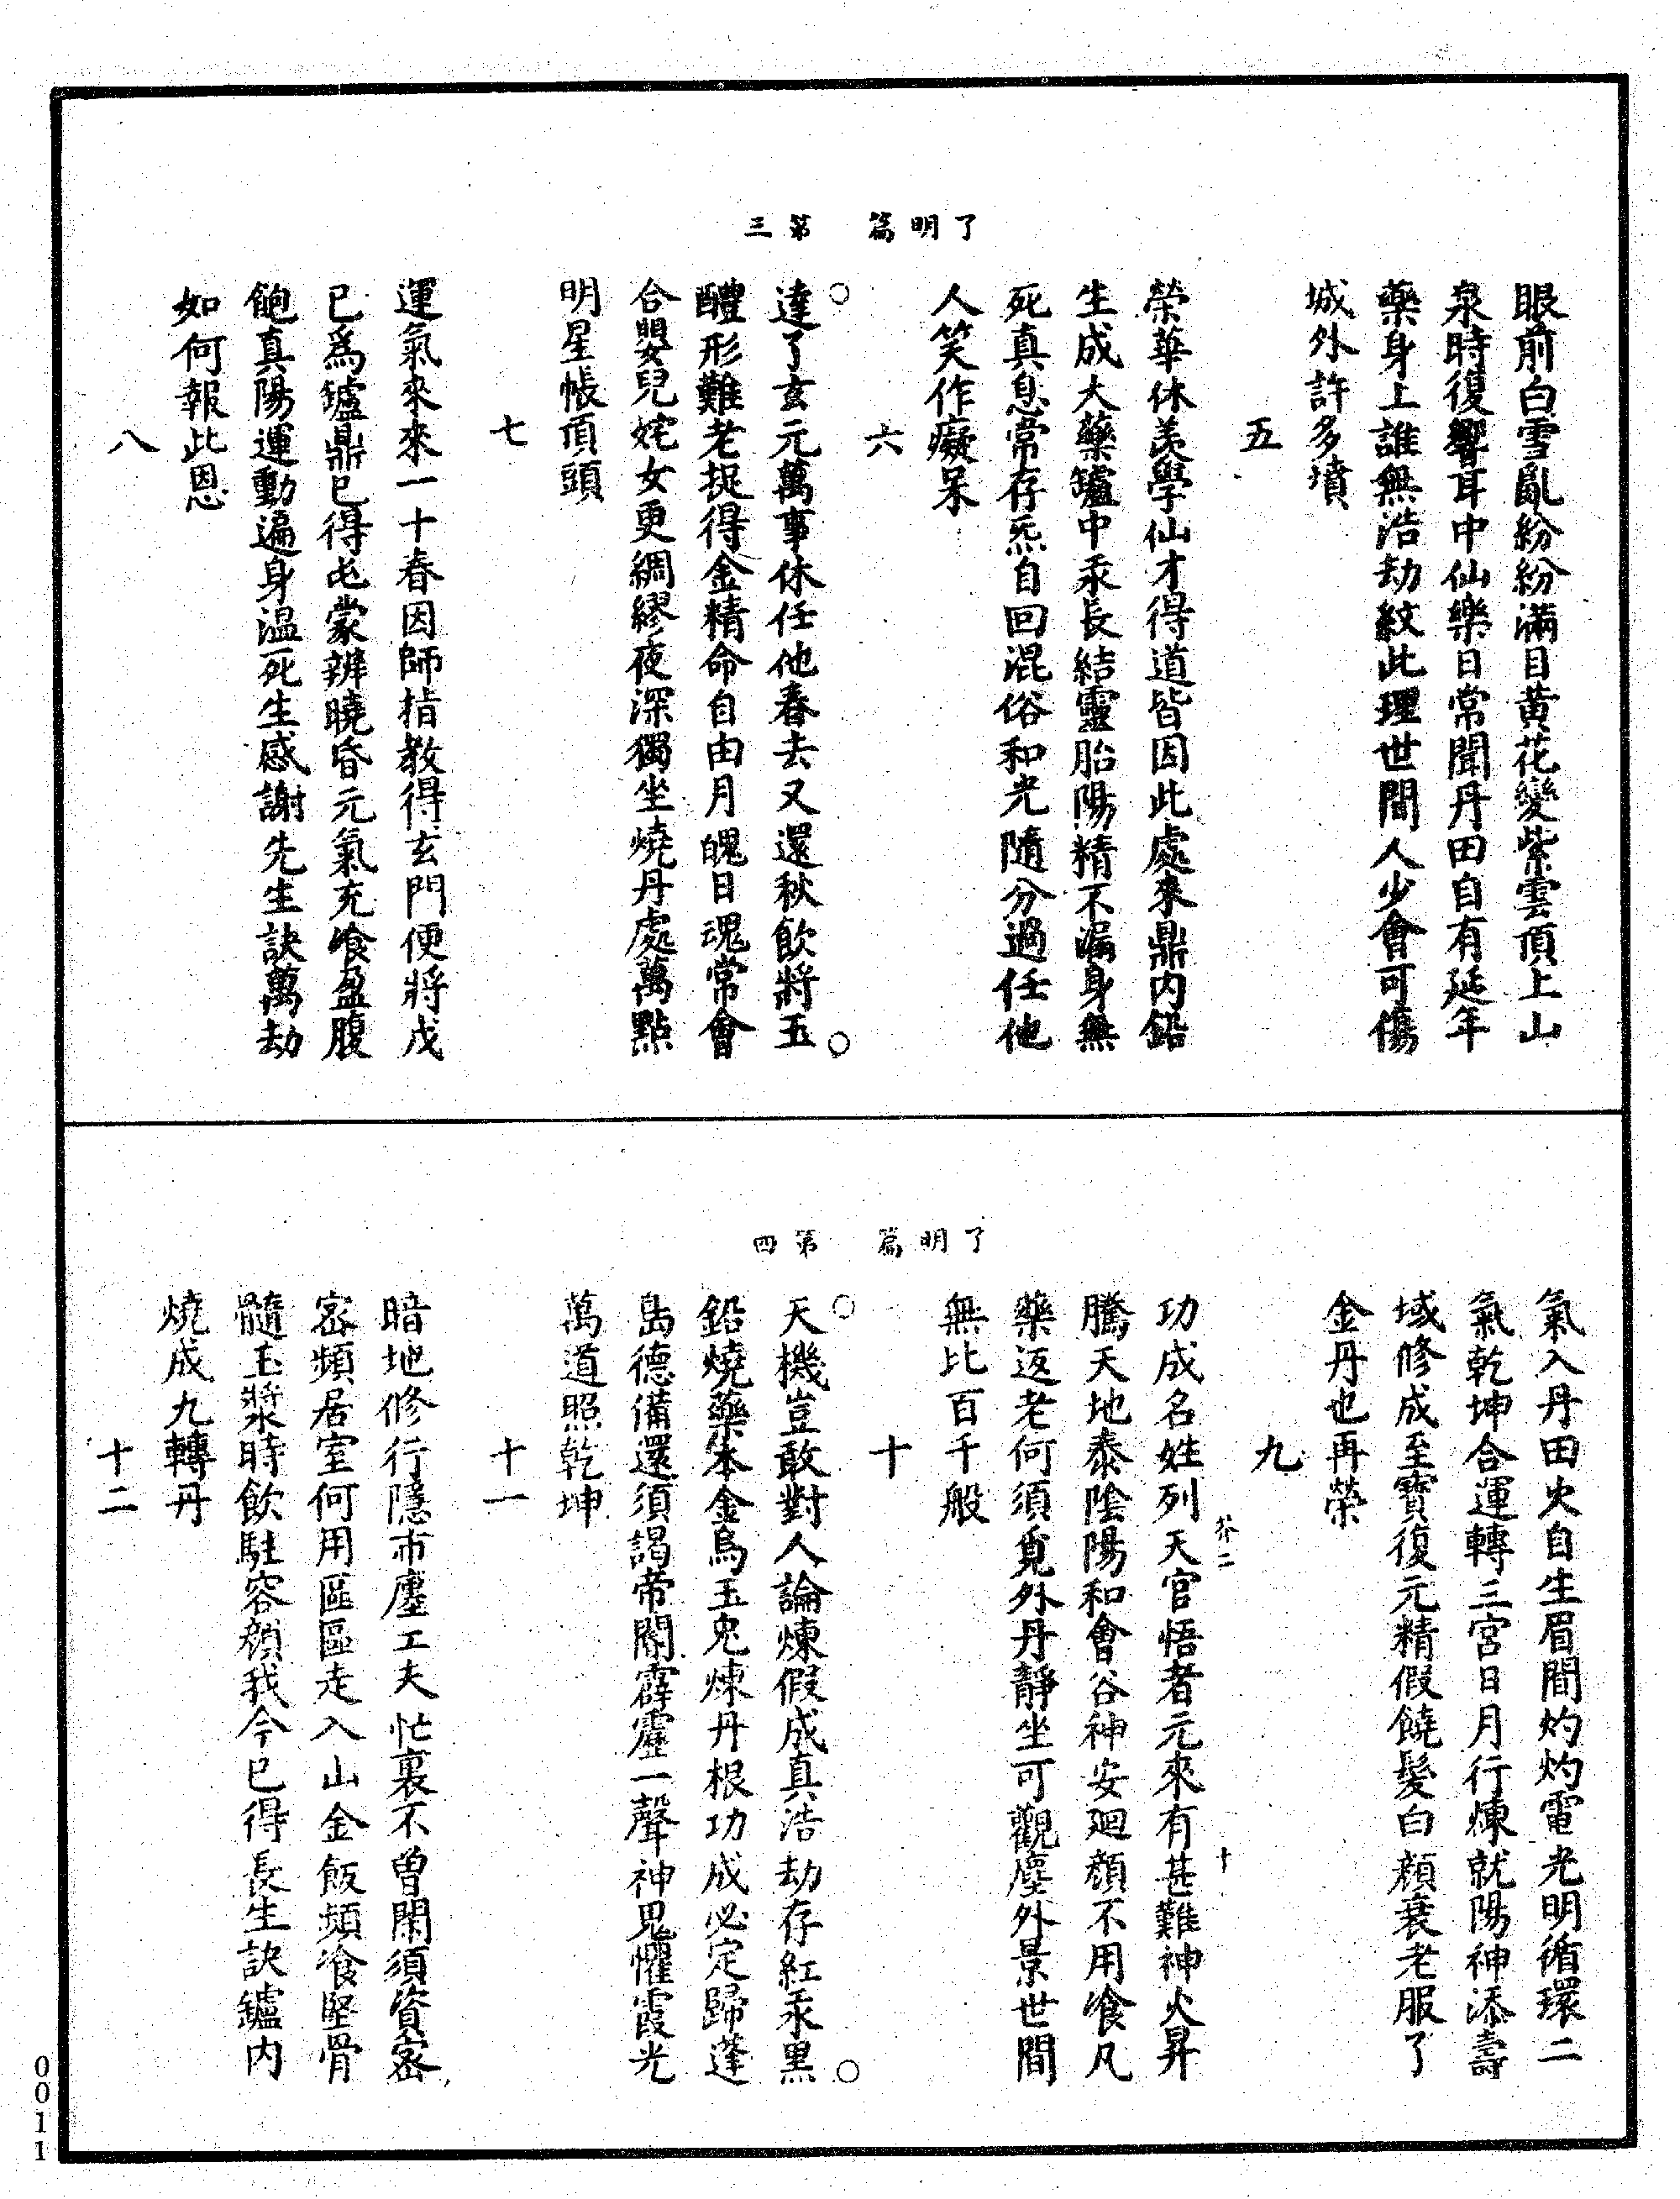 了明篇　第三
眼前白雪亂紛紛滿目黄花變紫雲頂上山
泉時復響耳中仙樂日常聞丹田自有延年
藥身上誰無浩劫紋此理世間人少會可傷
城外許多墳
五
榮華休羡學仙才得道皆因此處來鼎内鉛
生成大藥鑪中汞長結靈胎陽精不漏身無
死真息常存炁自回混俗和光隨分過任他
人笑作癡呆
六
達了玄元萬事休任他春去又還秋飲將玉
醴形難老捉得金精命自由月魄日魂常會
合嬰兒姹女更綢繆夜深獨坐燒丹處萬點
明星帳頂頭
七
運氣來來一十春因師指教得玄門便將戊
已爲鑪鼎已得屯蒙辨曉昏元氣充飡盈腹
飽真陽運動遍身温死生感謝先生訣萬劫
如何報此恩
八
了明篇　第四
氣入丹田火自生眉間灼灼電光明循環二
氣乾坤合運轉三宫日月行煉就陽神添壽
域修成至寳復元精假饒髮白顔衰老服了
金丹也再榮
九
芥二　十
功成名姓列天官悟者元來有甚難神火昇
騰天地泰陰陽和會谷神安廻顔不用飡凡
藥返老何須覓外丹靜坐可觀塵外景世間
無比百千般
十
天機豈敢對人論煉假成真浩劫存紅汞黒
鉛燒藥本金烏玉兎煉丹根功成必定歸蓬
島德備還須謁帝閽霹靂一聲神鬼懼霞光
萬道照乾坤
十一
暗地修行隱市廛工夫忙裏不曽閑須資宻
宻頻居室何用區區走入山金飯頻飡堅骨
髓玉漿時飲駐容顔我今已得長生訣鑪内
燒成九轉丹
十二
0011